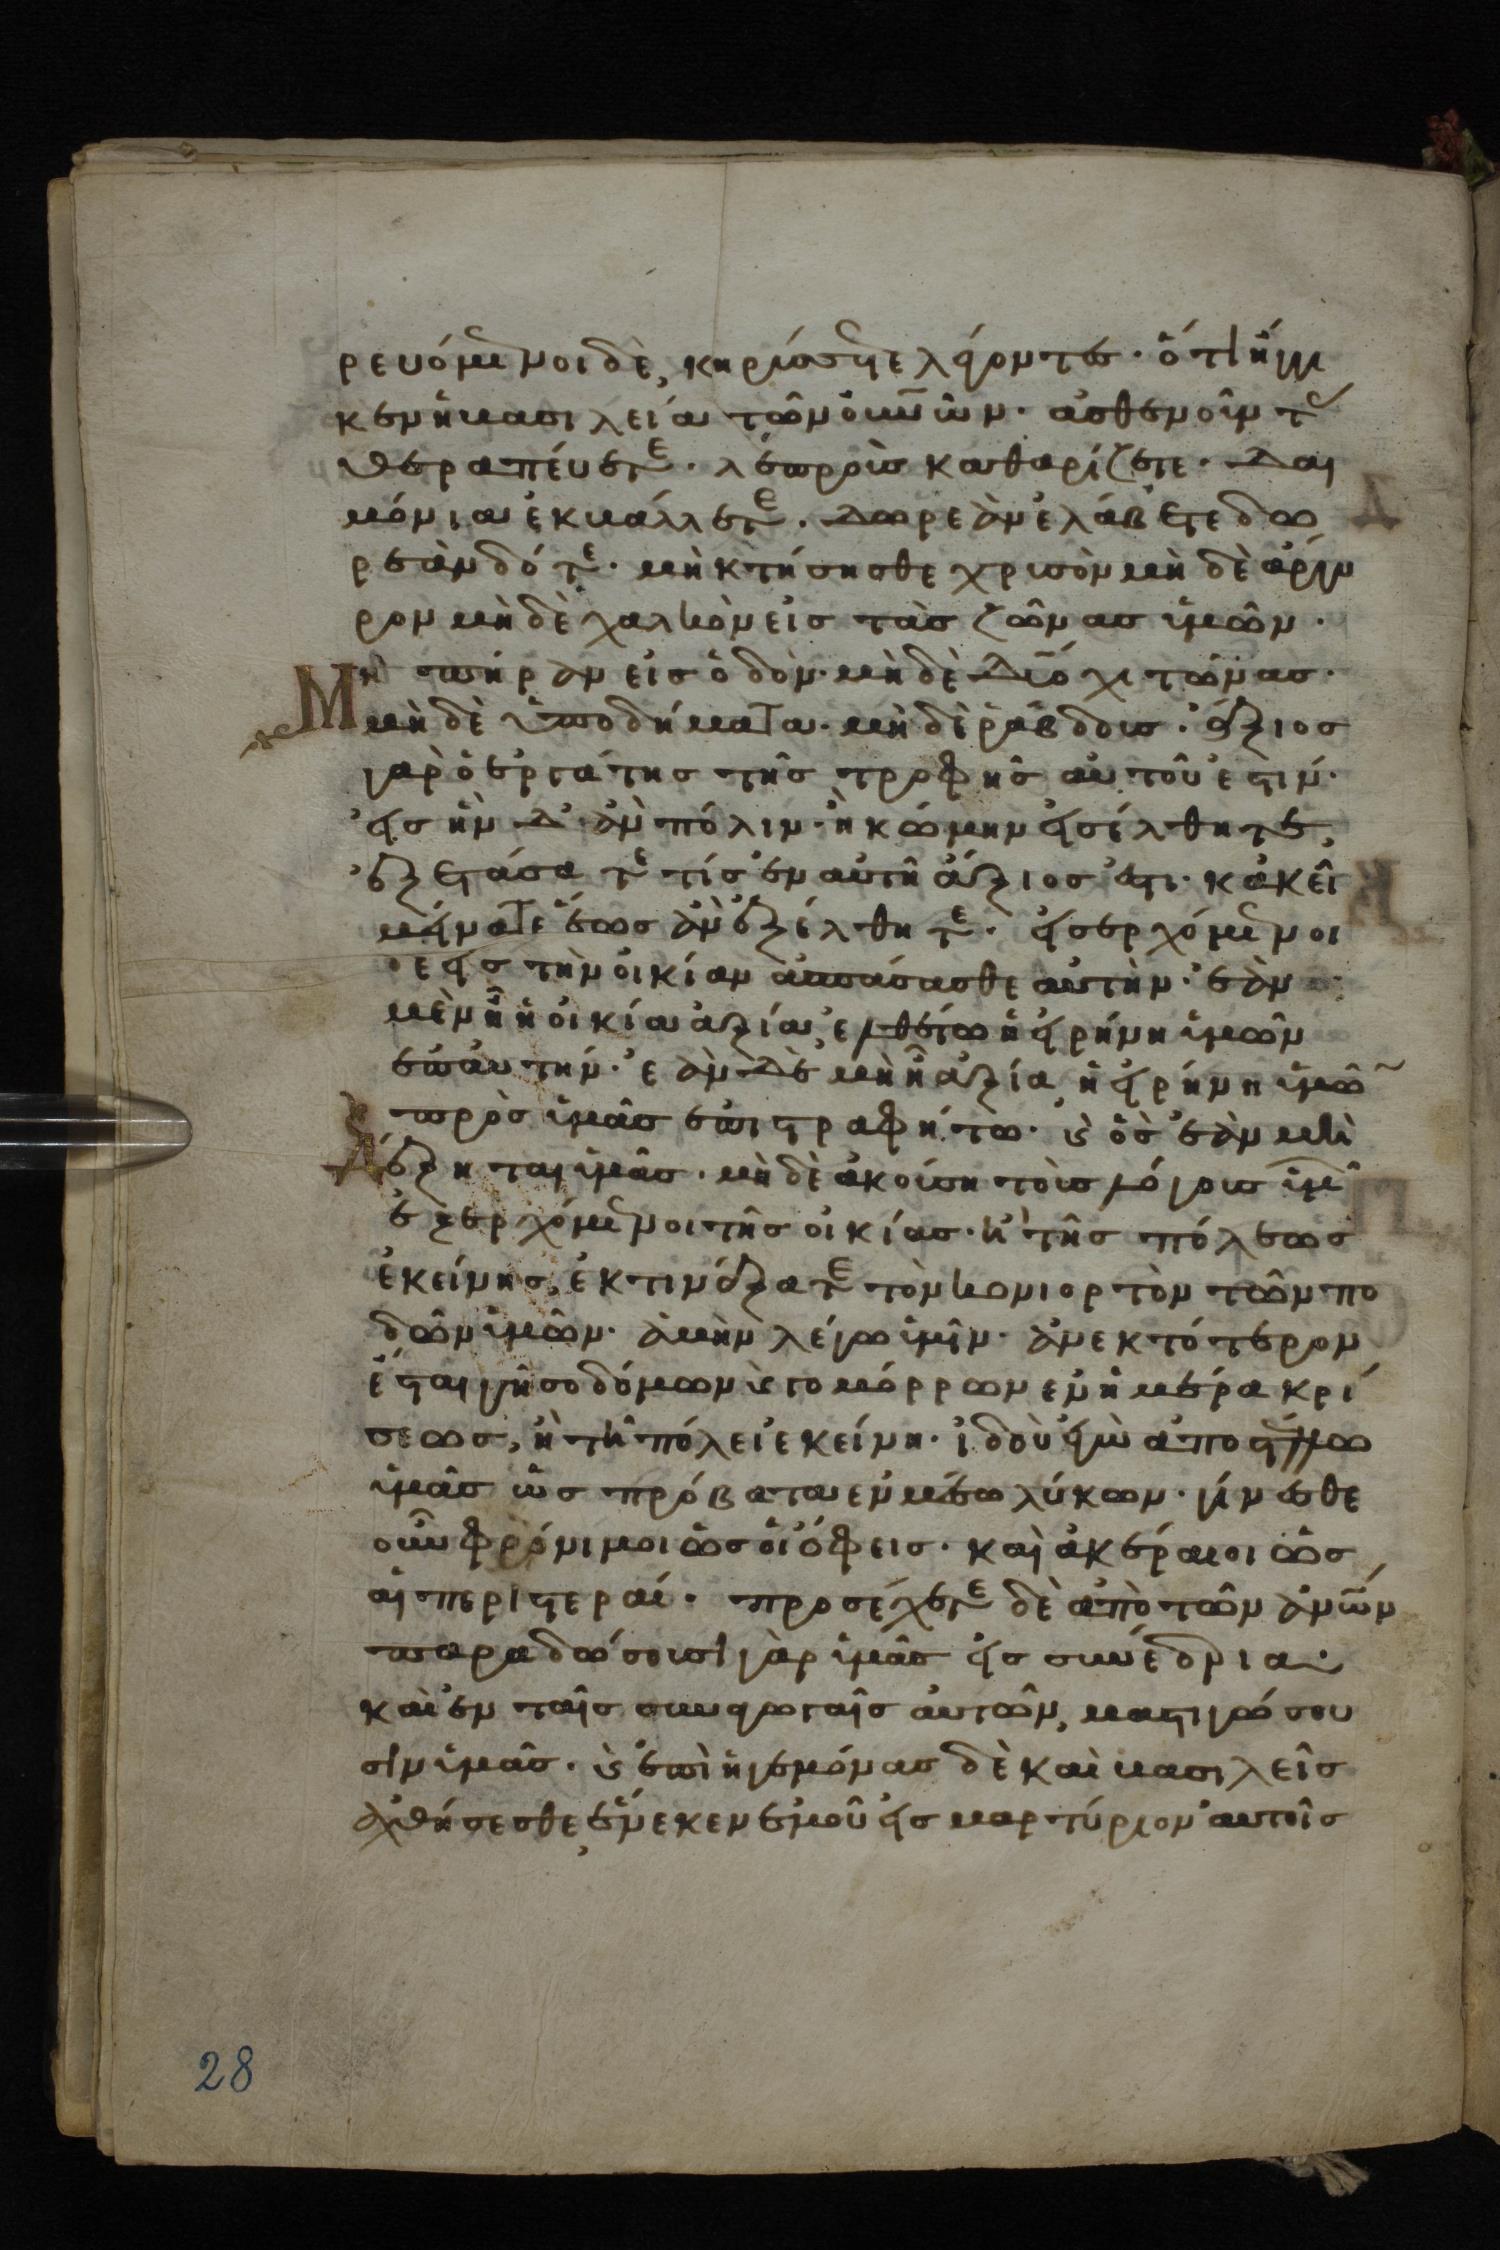 ρευόμενοι δὲ, κηρύσσετε λέγοντες· ὅτι ἤγγι
κεν ἡ βασιλεία τῶν οὐνῶν· ἀσθενοῦντ
θεραπεύετε· λεπροὺς καθαρίζετε· δαι
μόνια ἐκβάλλετε· δωρεὰν ἐλάβετε δω
ρεὰν δότε· μὴ κτήσησθε χρυσὸν μὴ δὲ ἄργυ
ρον μὴ δὲ χαλκὸν εἰς τὰς ζώνας ὑμῶν·
Μὴ πήραν εἰς ὁδὸν· μὴ δὲ δύο χιτῶνας·
μὴ δὲ ὑποδήματα· μὴ δὲ ῥάβδους· ἄξιος
γὰρ ὁ ἐργάτης τῆς τροφῆς αὐτοῦ ἐστιν·
εἰς ἣν δ' ἂν πόλιν· ἢ κώμην εἰσέλθητε,
ἐξετάσατε τίς ἐν αὐτῆ ἄξιος ἐστι· κἀκεῖ
μείνατε ἕως ἂν ἐξέλθητε· εἰσερχόμενοι
δε εἰς τὴν οἰκίαν ἀσπάσασθε αὐτὴν· ἐὰν
μὲν ἦ ἡ οἰκία ἀξία, ἐλθέτω ἡ εἰρήνη ὑμῶν
ἐπ' αὐτήν· ἐὰν δὲ μὴ ἦ ἀξία, ἡ εἰρήνη ὑμῶ
πρὸς ὑμᾶς ἐπιστραφήτω· κ ὃς ἐὰν μὴ
Δέξηται ὑμᾶς· μὴ δὲ ἀκούση τοὺς λόγους ὑμ
ἐξερχόμενοι τῆς οἰκίας· ἢ τῆς πόλεως
ἐκείνης, ἐκτινάξατε τὸν κονιορτὸν τῶν πο
δῶν ὑμῶν· ἀμὴν λέγω ὑμῖν· ἀνεκτότερον
ἔσται γῆ σοδόμων κ γομόρρων ἐν ἡμέρα κρί
σεως, ἢ τῆ πόλει ἐκείνη· ἰδοὺ ἐγὼ ἀποστέλλω
ὑμᾶς ὡς πρόβατα ἐν μέσω λύκων· γίνεσθε
οὖν φρόνιμοι ὡς οἱ ὄφεις· καὶ ἀκέραιοι ὡς
αἱ περιστεραί· προσέχετε δὲ ἀπὸ τῶν ἀνῶν
παραδώσουσι γὰρ ὑμᾶς εἰς συνέδρια·
καὶ ἐν ταῖς συναγωγαῖς αὐτῶν, μαστιγώσου
σιν ὑμᾶς· κ ἐπὶ ἡγεμόνας δὲ καὶ βασιλεῖς
ἀχθήσεσθε, ἕνεκεν ἐμοῦ εἰς μαρτύριον αὐτοῖς
28